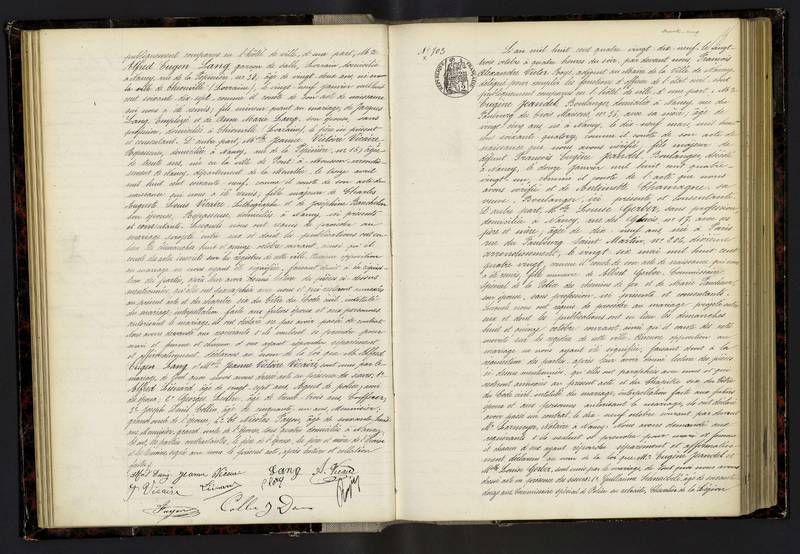 publiquement comparus en l'hôtel de ville, d'une part, Mr
Alfred Eugène Lang, garçon de salle, Lorrain, domicilié
à Nancy, rue de la Pépinière, no 38, âgé de vingt deux ans, né en
la ville de Thionville (Lorraine), le vingt neuf janvier mil huit
cent soixante dix-sept, comme il conste de son acte de naissance
qui nous a été remis; fils mineur quant au mariage, de Jacques
Lang, Employé et de Anne Marie Lang, son épouse, sans
profession, domiciliés à Thionville (Lorraine), le père ici présent
et consentant. D'autre part, Melle Jeanne Victoire Vicaire,
Repasseuse, domiciliée à Nancy, rue de la Pépinière, no 15, âgée
de trente ans, née en la ville de Pont à Mousson, arrondis-
sement de Nancy, département de la Meurthe, le treize avril
mil huit cent soixante neuf, comme il conste de son acte de
naissance qui nous a été remis; fille majeure de Charles
Auguste Louis Vicaire, Lithographe et de Joséphine
son épouse, Repasseuse, domiciliés à Nancy, ici présents
et consentants. Lesquels nous ont requis de procéder au
mariage projeté entre eux et dont les publications ont eu
lieu les dimanches huit et quinze octobre courant, ainsi qu'il
conste des actes inscrits sur les registres de cette ville. Aucune opposition
au mariage ne nous ayant été signifiée, faisant droit à la réquisi-
tion des parties, après leur avoir donné lecture des pièces ci-dessus
mentionnées, qu'elles ont paraphées avec nous et qui resteront annexées
au présent acte et du chapitre six du titre du Code civil, intitulé
du mariage, interpellation faite aux futurs époux et aux personnes
autorisant le mariage, ils ont déclaré ne pas avoir passé de contrat.
Nous avons demandé aux requérants s'ils veulent se prendre pour
mari et femme et chacun d'eux ayant répondu séparément
et affirmativement, déclarons au nom de la loi que Mr Alfred
Eugène Lang et Melle Jeanne Victoire Vicaire, sont unis par le
mariage, de tout quoi nous avons dressé acte en présence des sieurs: 1o
Alfred Liénard, âgé de vingt sept ans, Agent de police, ami
de l'époux, 2o Georges
3o Joseph âgé de cinquante un ans, Menuisier,
grand oncle de l'épouse, 4o et Nicolas Fayon, âgé de soixante
ans, Menuisier, grand oncle de l'épouse, tous quatre domiciliés à Nancy.
Et ont, les parties contractantes, le père de l'époux, les père et mère de l'épouse
et les témoins, signé avec nous le présent acte, après lecture et collation
faites.
Alfred Lang Jeanne Vicaire Lang A. Vicaire
J. Vicaire Liénard
Fayon
No 703
RÉPUBLIQUE FRANÇAISE
L'an mil huit cent quatre vingt dix-neuf, le vingt
trois octobre à quatre heures du soir, par devant nous, François
Alexandre Victor adjoint au Maire de la Ville de Nancy,
délégué pour remplir les fonctions d'officier de l'état civil, sont
publiquement comparus en l'hôtel de ville, d'une part: Mr
Eugène Jeandel, Boulanger, domicilié à Nancy, rue du
Faubourg des trois Maisons, no 35, avec sa mère, âgé de
vingt cinq ans, né à Nancy, le dix-neuf mars, mil huit
cent soixante quatorze, comme il conste de son acte de
naissance que nous avons vérifié; fils majeur de
défunt François Eugène Jeandel, Boulanger, décédé
à Nancy, le douze janvier mil huit cent quatre
vingt un, comme il conste de l'acte que nous
avons vérifié et de Antoinette Champagne, sa
veuve, Boulanger, ici présente et consentante.
D'autre part, Melle Louise Gerber, sans profession,
domiciliée à Nancy, rue des no 17, avec ses
père et mère; âgée de dix-neuf ans, née à Paris
rue du Faubourg Saint Martin, no 206, dixième
arrondissement, le vingt six mai mil huit cent
quatre vingt, comme il conste de son acte de naissance qui nous
a été remis; fille mineure de Albert Gerber, Commissaire
spécial de la Police des chemins de fer et de Marie
son épouse, sans profession, ici présents et consentants.
Lesquels nous ont requis de procéder au mariage projeté entre
eux et dont les publications ont eu lieu les dimanches
huit et quinze octobre courant, ainsi qu'il conste des actes
inscrits sur les registres de cette ville. Aucune opposition au
mariage ne nous ayant été signifiée, faisant droit à la
réquisition des parties, après leur avoir donné lecture des pièces
ci-dessus mentionnées, qu'elles ont paraphées avec nous et qui
resteront annexées au présent acte et du chapitre six du titre
du Code civil, intitulé du mariage, interpellation faite aux futurs
époux et aux personnes autorisant le mariage, ils ont déclaré
avoir passé un contrat, le dix-neuf octobre courant par devant
Me notaire à Nancy. Nous avons demandé aux
requérants s'ils veulent se prendre pour mari et femme
et chacun d'eux ayant répondu séparément et affirmative-
ment, déclarons au nom de la loi que Mr Eugène Jeandel et
Melle Louise Gerber, sont unis par le mariage, de tout quoi nous avons
dressé acte en présence des sieurs: 1o Guillaume âgé de soixante
douze ans, Commissaire spécial de Police en retraite, Chevalier de la Légion